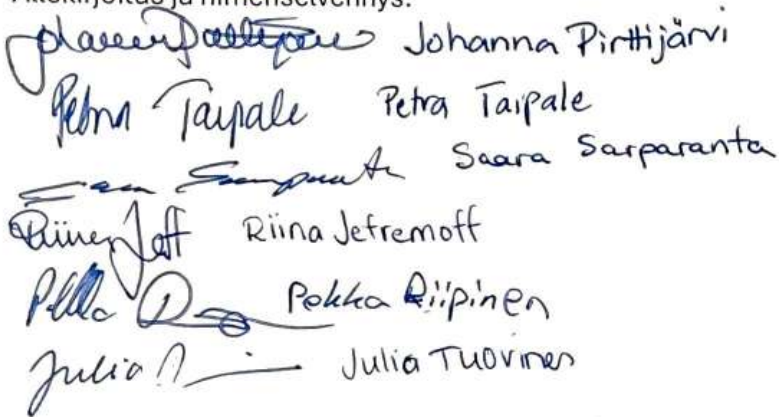 Allekirjoitus ja nimenselvennys:
Johanna Pirttijärvi
Petra Taipale Petra Taipale
Saara Sarparanta
Riina Jeff Riina Jefremoff
Pekka Riipinen
Julia Julia Tuovinen